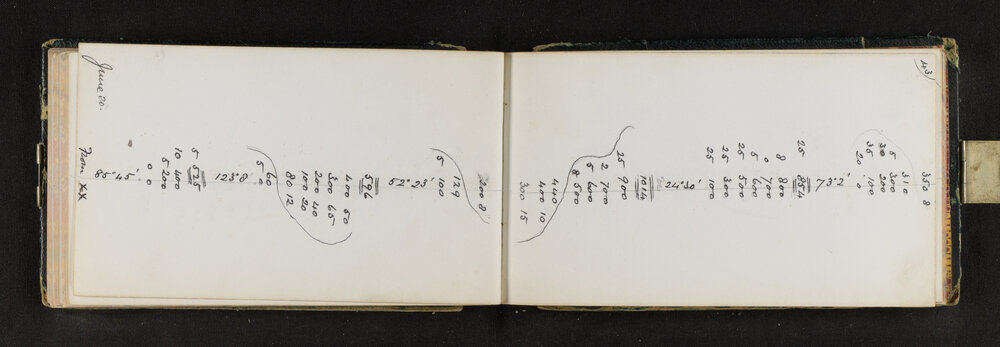 43
350 8
310
5 300
30 200
35 100
20 0
73°2'
25 854
8 800
0 700
5 600
25 500
25 300
25 100
24°30'
1014
25 900
2 700
5 600
8 500
440
400 10
300 15
200 8
129
5 100
52°23'
596
400 50
300 65
200 40
100 20
80 12
60
5 0
123°8'
5 525
10 400
5 200
0 0
85°45'
From XX
June 20.